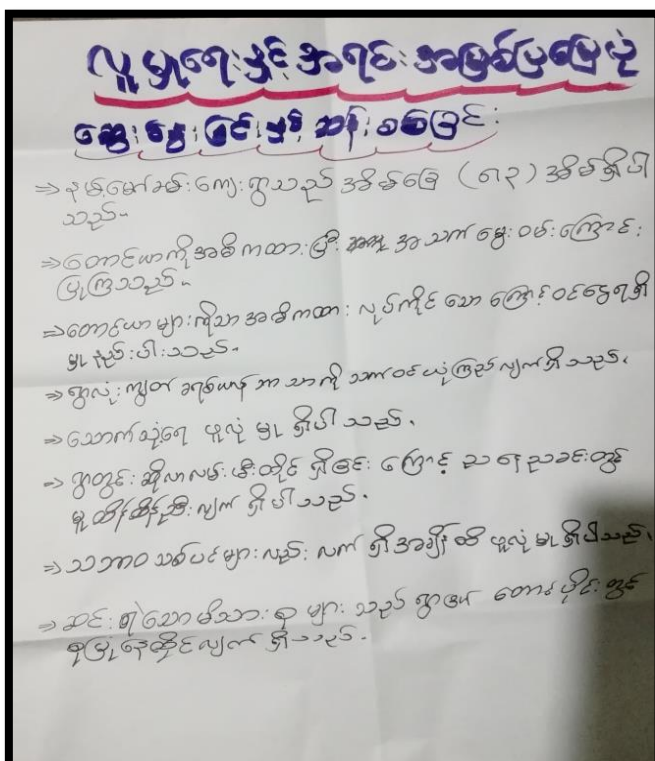 လူမှုရေးနှင့် အရင်းအမြစ်ပြမြေပုံ
ဆွေးနွေးခြင်းနှင့် ဆန်းစစ်ခြင်း
⇒ ကျေးရွာသည် အိမ်ခြေ (၈၃) အိမ်ရှိပါ
သည်။
⇒ တောင်ယာကိုအဓိကထားပြီး အသက်မွေးဝမ်းကြောင်း
ပြုကြသည်။
⇒ တောင်ယာများကိုသာ အဓိကထား လုပ်ကိုင်သောကြောင့် ဝင်ငွေရရှိ
မှုနည်းပါးသည်။
⇒ ရွာလုံးကျွတ် ခရစ်ယာန်ဘာသာကို သက်ဝင်ယုံကြည်လျက်ရှိသည်။
⇒ သောက်သုံးရေ ဖူလုံမှုရှိပါသည်။
⇒ ရွာတွင်း ဆိုလာလမ်းမီးတိုင် ရှိခြင်းကြောင့် ညနေညခင်းတွင်
လျက်ရှိပါသည်။
⇒ သဘာဝသစ်ပင်များလည်း လက်ရှိအချိန်ထိ ဖူလုံမှုရှိပါသည်။
⇒ ဆင်းရဲသောမိသားစုများသည် ရွာ၏ တောင်ပိုင်းတွင်
စုပြုံနေထိုင်လျက်ရှိသည်။